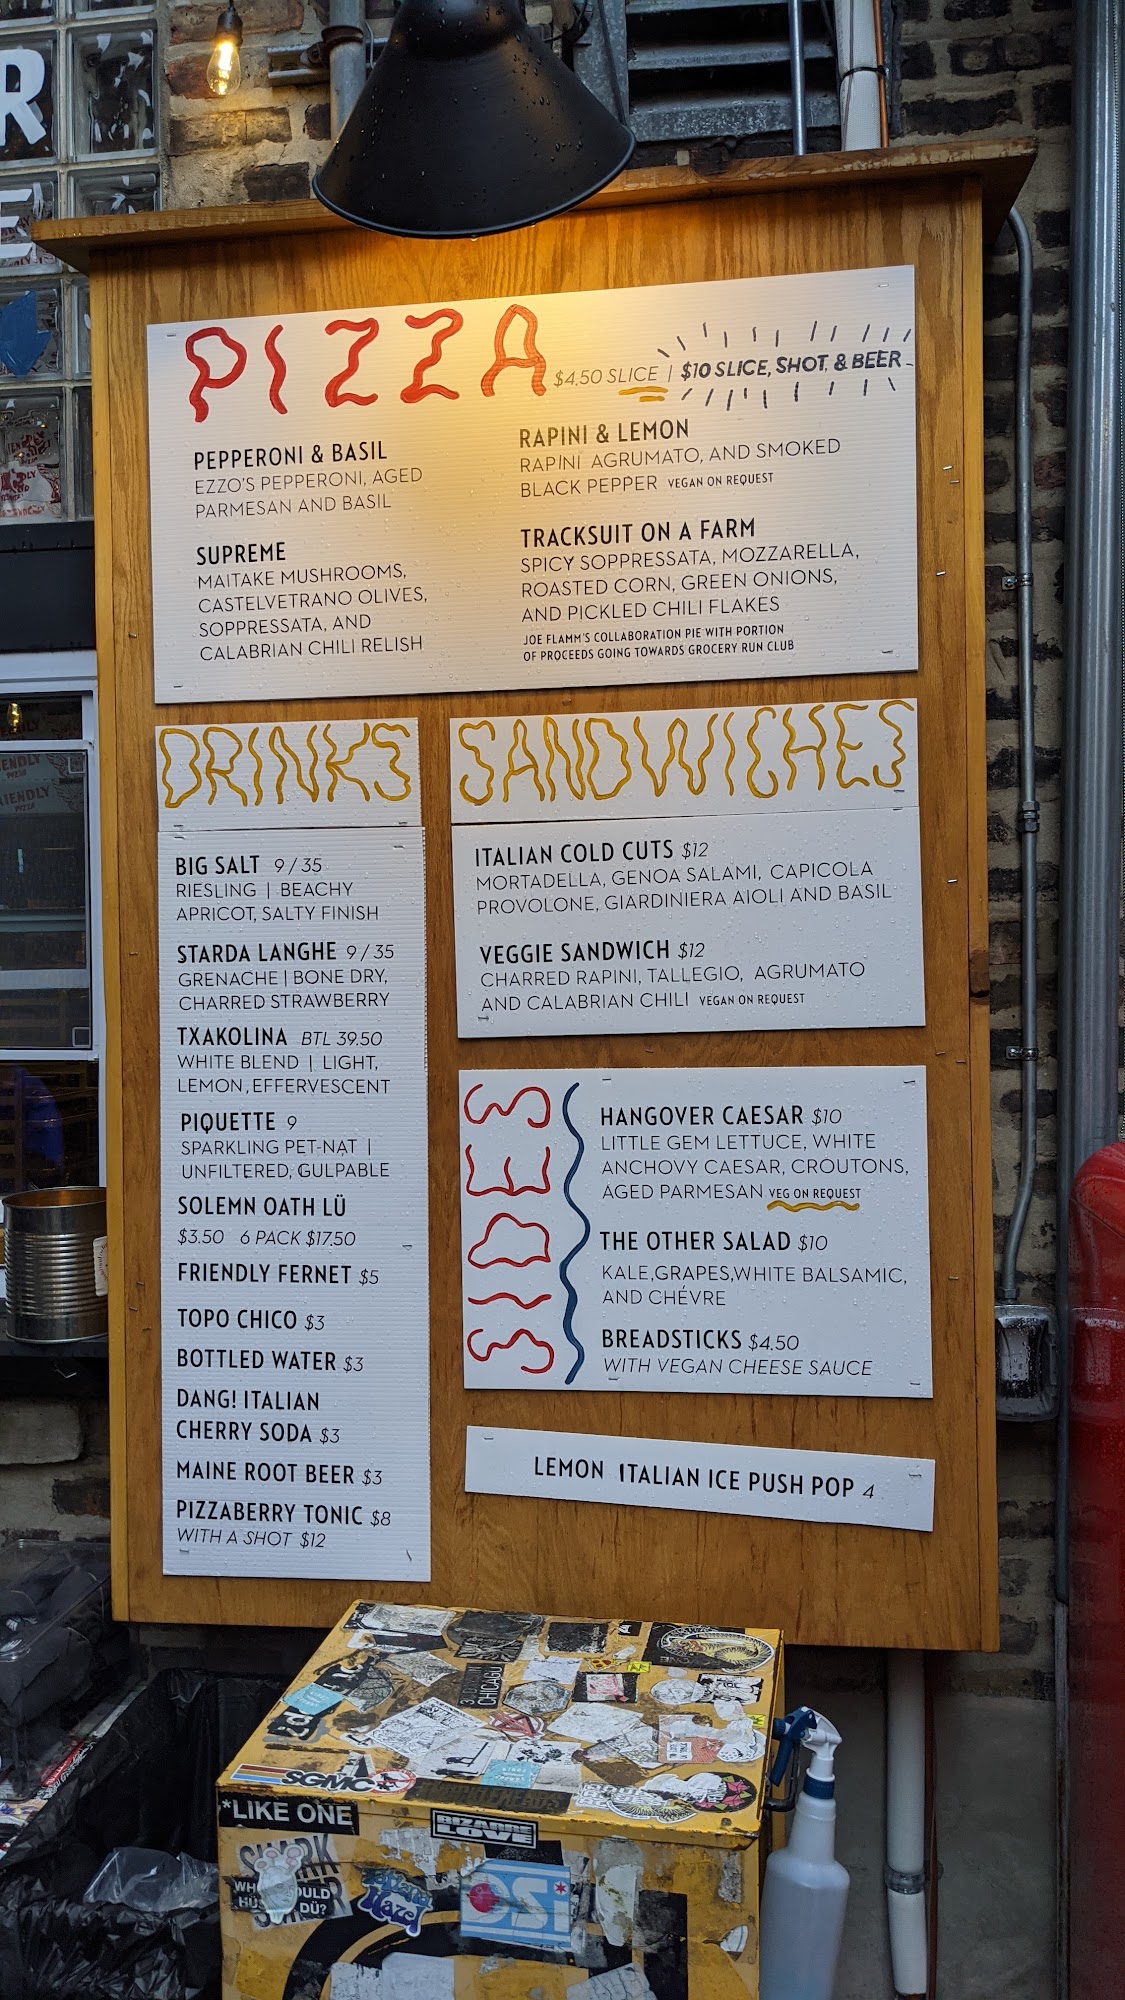 R
E
PIZZA $4.50 SLICE | $10 SLICE, SHOT, & BEER
PEPPERONI & BASIL
EZZO'S PEPPERONI, AGED
PARMESAN AND BASIL
SUPREME
MAITAKE MUSHROOMS,
CASTELVETRANO OLIVES,
SOPPRESSATA, AND
CALABRIAN CHILI RELISH
RAPINI & LEMON
RAPINI AGRUMATO, AND SMOKED
BLACK PEPPER VEGAN ON REQUEST
TRACKSUIT ON A FARM
SPICY SOPPRESSATA, MOZZARELLA,
ROASTED CORN, GREEN ONIONS,
AND PICKLED CHILI FLAKES
JOE FLAMM'S COLLABORATION PIE WITH PORTION
OF PROCEEDS GOING TOWARDS GROCERY RUN CLUB
DRINKS
BIG SALT 9/35
RIESLING | BEACHY
APRICOT, SALTY FINISH
STARDA LANGHE 9/35
GRENACHE | BONE DRY,
CHARRED STRAWBERRY
TXAKOLINA BTL 39.50
WHITE BLEND | LIGHT,
LEMON, EFFERVESCENT
PIQUETTE 9
SPARKLING PET-NAT |
UNFILTERED, GULPABLE
SOLEMN OATH LÜ
$3.50 6 PACK $17.50
FRIENDLY FERNET $5
TOPO CHICO $3
BOTTLED WATER $3
DANG! ITALIAN
CHERRY SODA $3
MAINE ROOT BEER $3
PIZZABERRY TONIC $8
WITH A SHOT $12
SANDWICHES
ITALIAN COLD CUTS $12
MORTADELLA, GENOA SALAMI, CAPICOLA
PROVOLONE, GIARDINIERA AIOLI AND BASIL
VEGGIE SANDWICH $12
CHARRED RAPINI, TALLEGIO, AGRUMATO
AND CALABRIAN CHILI VEGAN ON REQUEST
SIDES
HANGOVER CAESAR $10
LITTLE GEM LETTUCE, WHITE
ANCHOVY CAESAR, CROUTONS,
AGED PARMESAN VEG ON REQUEST
THE OTHER SALAD $10
KALE,GRAPES,WHITE BALSAMIC,
AND CHÉVRE
BREADSTICKS $4.50
WITH VEGAN CHEESE SAUCE
LEMON ITALIAN ICE PUSH POP 4
CHICAGO
SGMC
*LIKE ONE
BIZARRE
LOVE
DSi